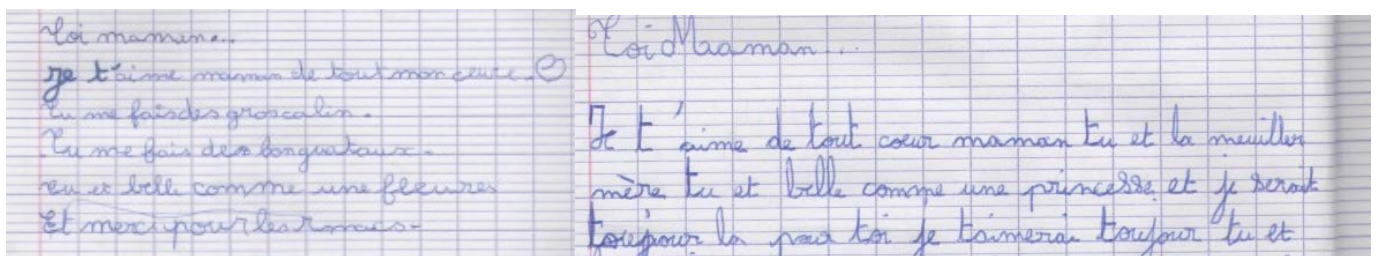 Toi maman...
Je t'aime maman de tout mon ceure.
Tu me fais des gros calin.
Tu me fais des bonguataux.
Tu es belle comme une fleures
Et merci pour les
Toi Maaman...
Je t'aime de tout cœur maman tu et la meuiller
mère tu et belle comme une princesse et je serait
toujour la pour toi je t'aimerai toujour tu et